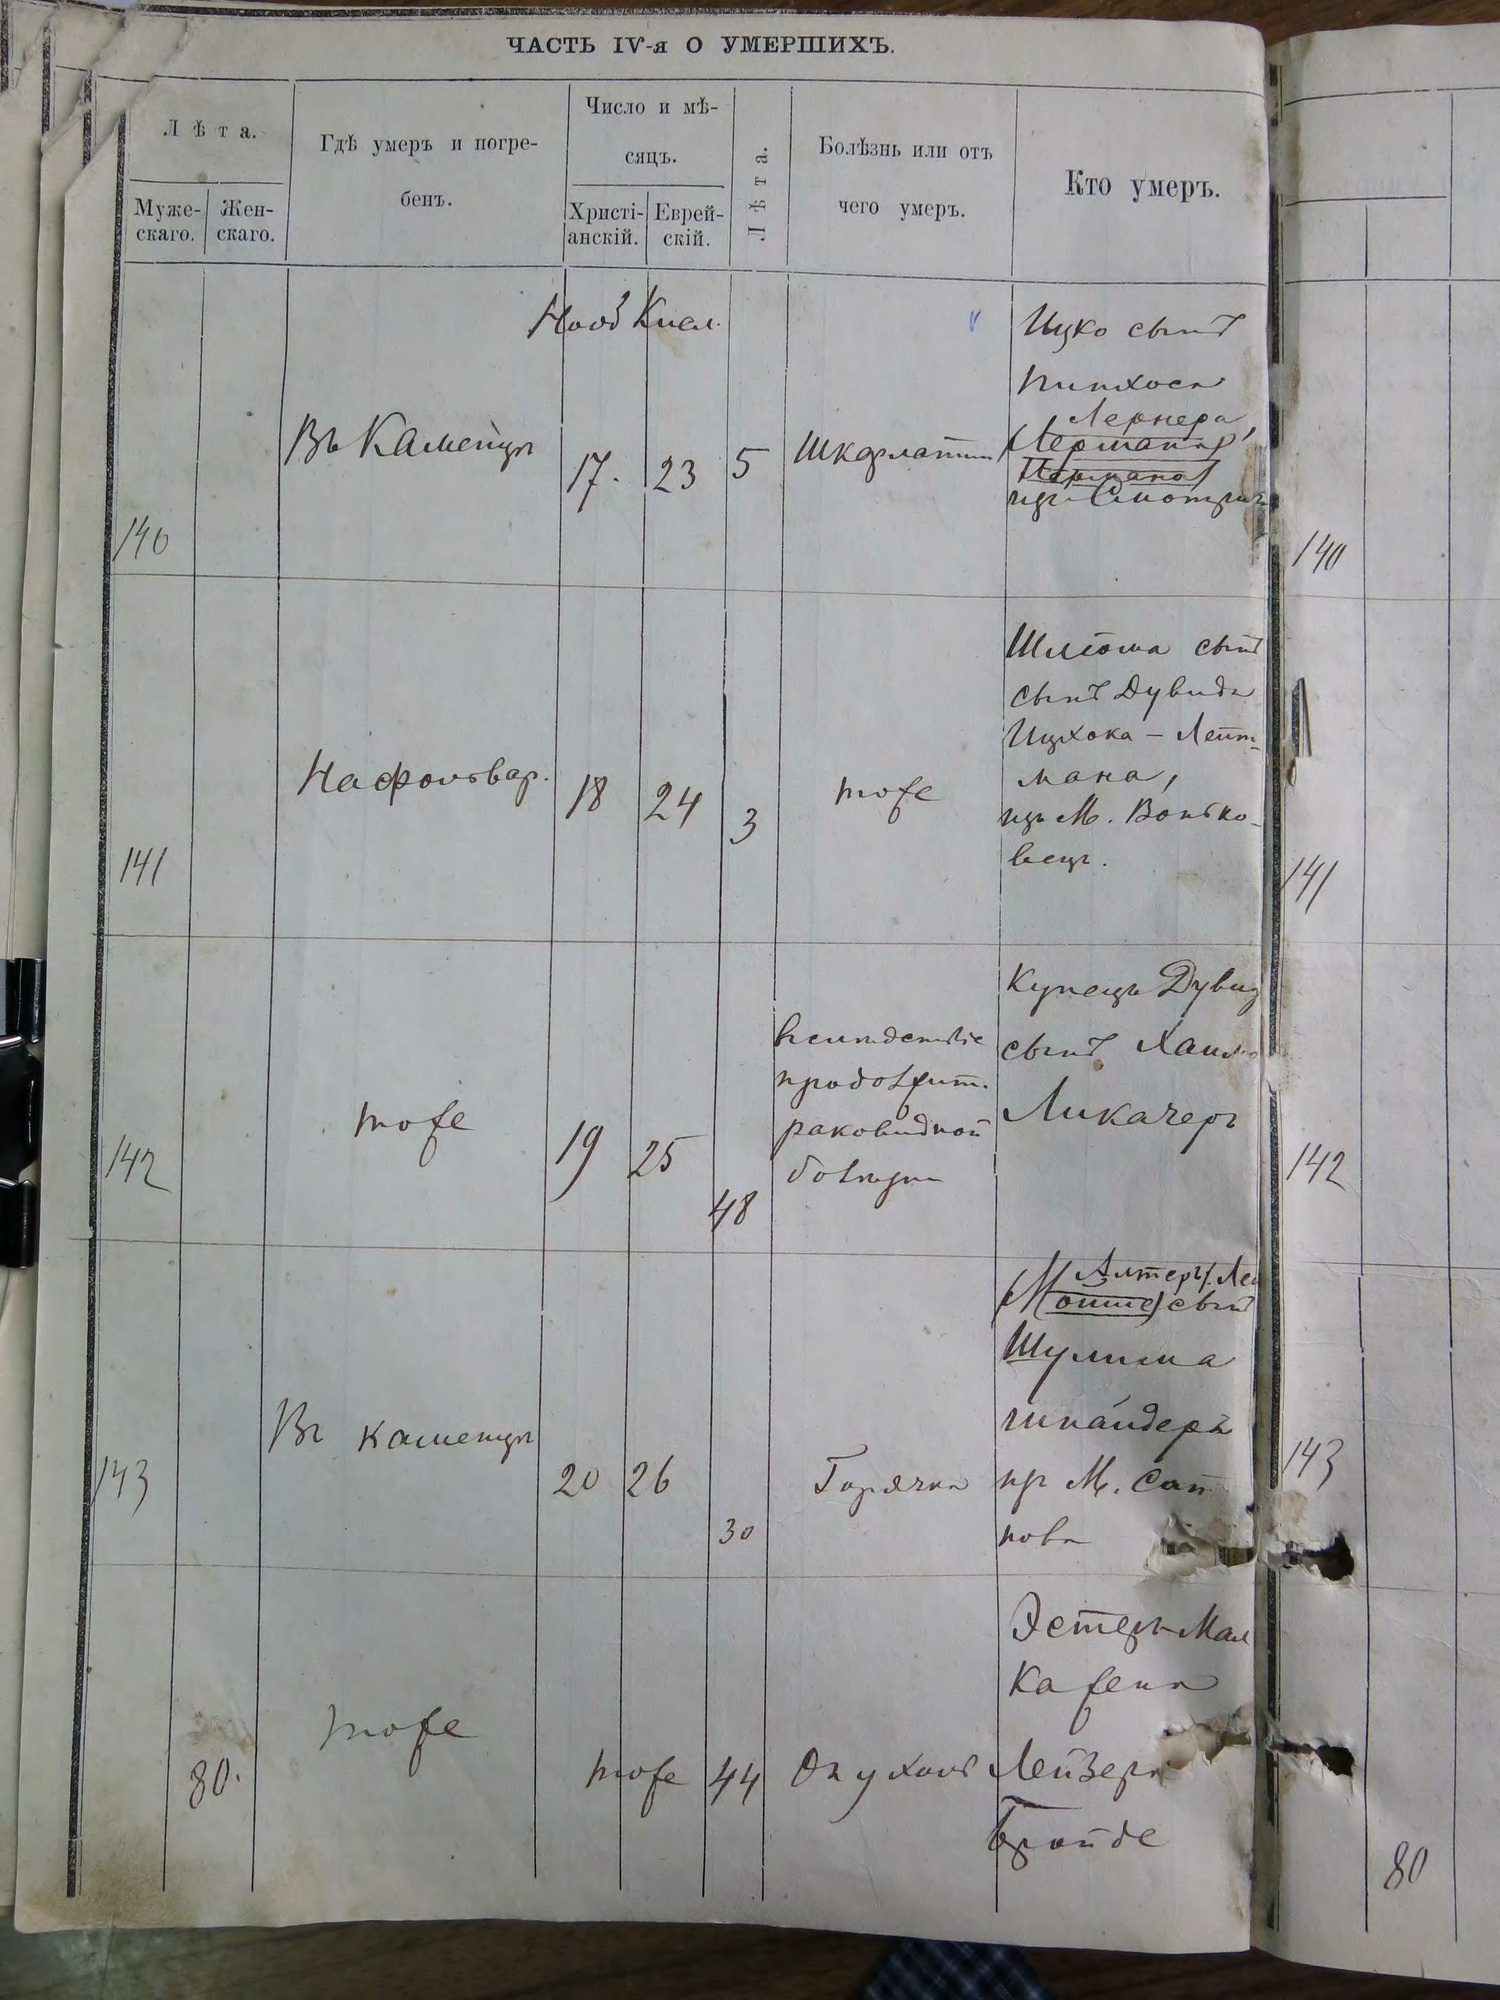 ЧАСТЬ IV-я О УМЕРШИХЪ.
Лѣта.
Муже-
скаго.
Жен-
скаго.
Гдѣ умеръ и погре-
бенъ.
Число и мѣ-
сяцъ.
Христі-
анскій.
Еврей-
скій.
Лѣта.
Болѣзнь или отъ
чего умеръ.
Кто умеръ.
Нояб Кисл.
140
Въ Каменцѣ
17.
23
5
Шкарлатин
Ицко сынъ
Пинхоса
Лернера,
(Лермана)
изъ Смотрич
140
141
На фольвар.
18
24
3
тоже
Шлёма сынъ
сынъ Дувида
Ицхока - Лейт-
мана,
изъ М. Вонько-
вецъ.
141
142
тоже
19
25
48
вслѣдствіе
продолжит.
раковидной
болѣзни
Купецъ Дувид
сынъ Хаим
Ликачеръ
142
143
Въ Каменцѣ
20
26
30
Горячка
Алтеръ
(Мошко) сынъ
Шулима
шпайдеръ
М. Сат
нова
143
80.
тоже
тоже
44
Опухоль
Эстеръ Мал
ка жена
Лейзера
Бройде
80